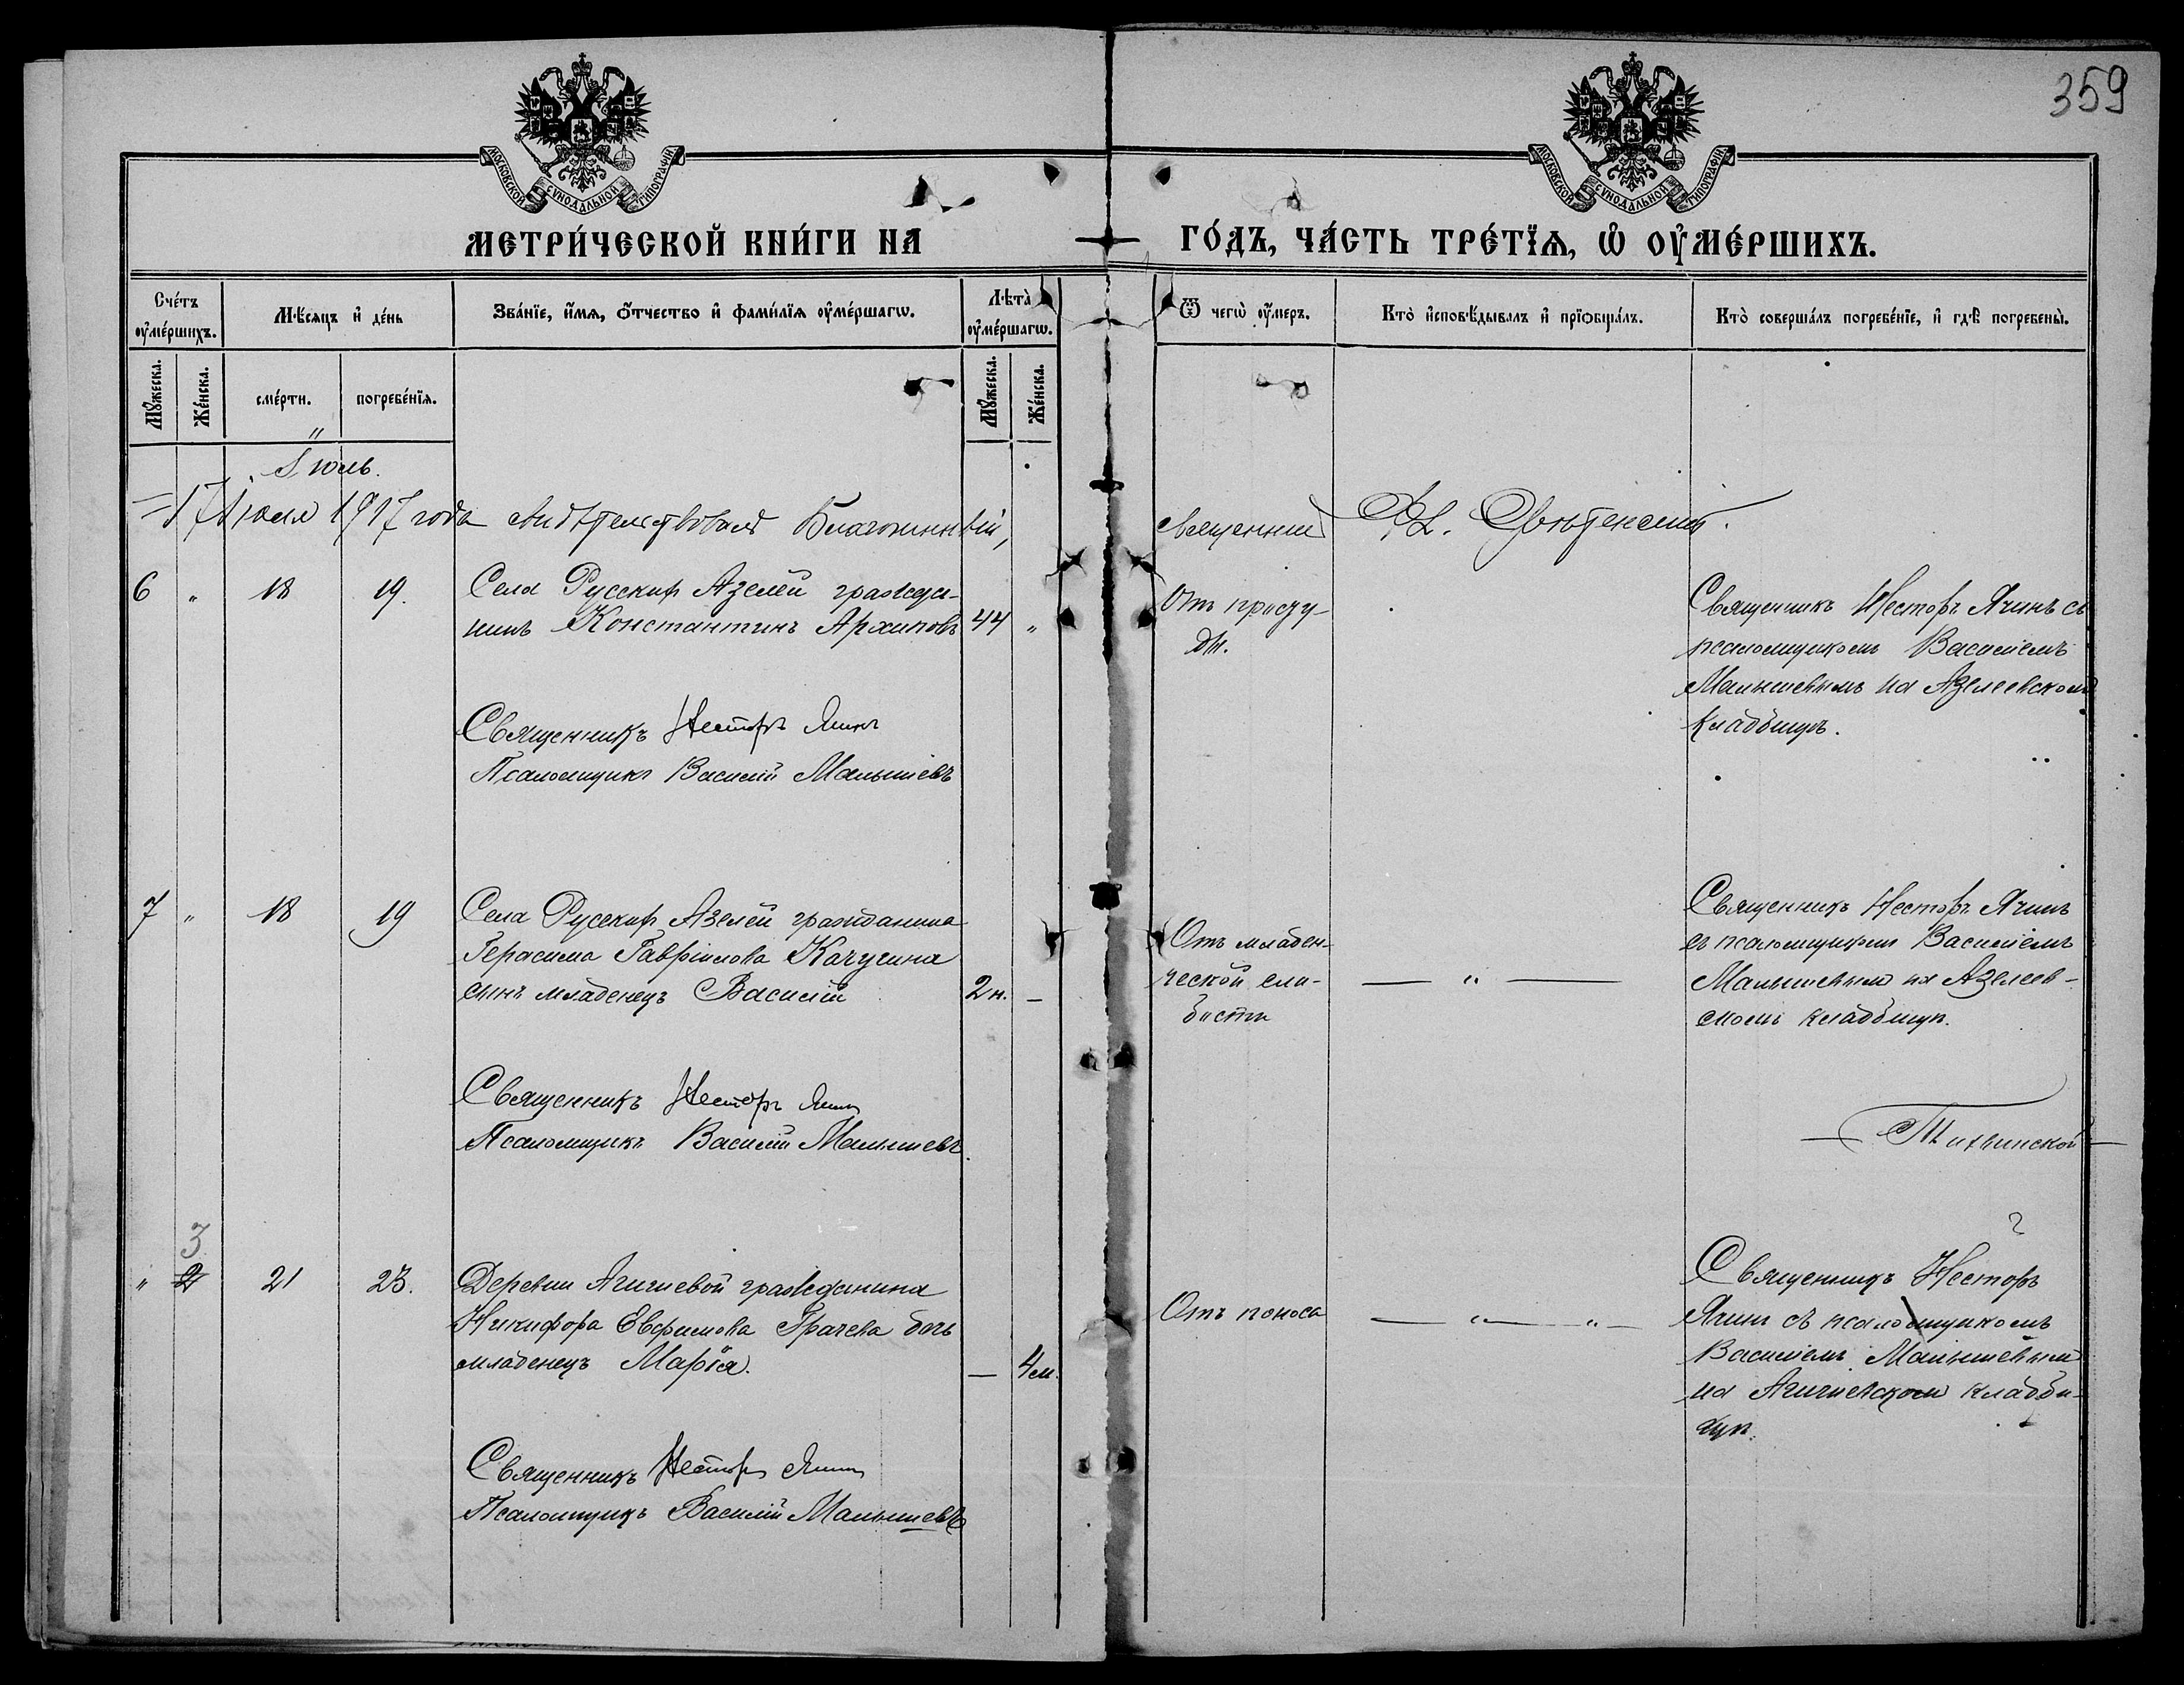 359
МОСКОВСКОЙ СѴНОДАЛЬНОЙ ТИПОГРАФІИ
МОСКОВСКОЙ СѴНОДАЛЬНОЙ ТИПОГРАФІИ
МЕТРИ́ЧЕСКОЙ КНИ́ГИ НА ГО́ДЪ, ЧА́СТЬ ТРЕ́ТЇѦ, Ѡ҆ ОУ҆МЕ́РШИХЪ.
Сче́тъ оу҆ме́ршихъ.
Мѣ́сяцъ и҆ де́нь
Зва́нїе, и҆́мѧ, о҆́тчество и҆ фами́лїѧ оу҆ме́ршагѡ.
Лѣта̀ оу҆ме́ршагѡ.
Ѿ чегѡ̀ оу҆́меръ.
Кто̀ и҆сповѣ́дывалъ и҆ прїѡбща́лъ.
Кто̀ соверша́лъ погребе́нїе, и҆ гдѣ̀ погребены̀.
Мꙋ́жеска.
Же́нска.
сме́рти.
погребе́нїѧ.
Мꙋ́жеска.
Же́нска.
Іюль.
17 іюля 1917 года свидѣтельствовалъ Благочинный, священникъ
6 " 18 19. Села Русскихъ Азелей гражда-
нинъ Константинъ Архиповъ 44 "
Отъ просту-
ды.
Священникъ Несторъ Ячинъ съ
псаломщикомъ Василіемъ
Малышевымъ на Азелеевскомъ
кладбищѣ.
Священникъ Несторъ Ячинъ
Псаломщикъ Василій Малышевъ
7 " 18 19 Села Русскихъ Азелей гражданина
Герасима Гавріилова Качугина
сынъ младенецъ Василій 2 н. —
Отъ младен-
ческой сла-
бости
— " —
Священникъ Несторъ Ячинъ
съ псаломщикомъ Василіемъ
Малышевымъ на Азелеев-
скомъ кладбищѣ.
Священникъ Несторъ Ячинъ
Псаломщикъ Василій Малышевъ.
Тихвинской
3
" 2 21 23. Деревни Агишевой гражданина
Никифора Евфимова Грачева дочь
младенецъ Марія. — 4 м.
Отъ поноса
— " — " —
Священникъ Несторъ
Ячинъ съ псаломщикомъ
Василіемъ Малышевымъ
на Агишевскомъ кладби-
щѣ.
Священникъ Несторъ Ячинъ
Псаломщикъ Василій Малышевъ